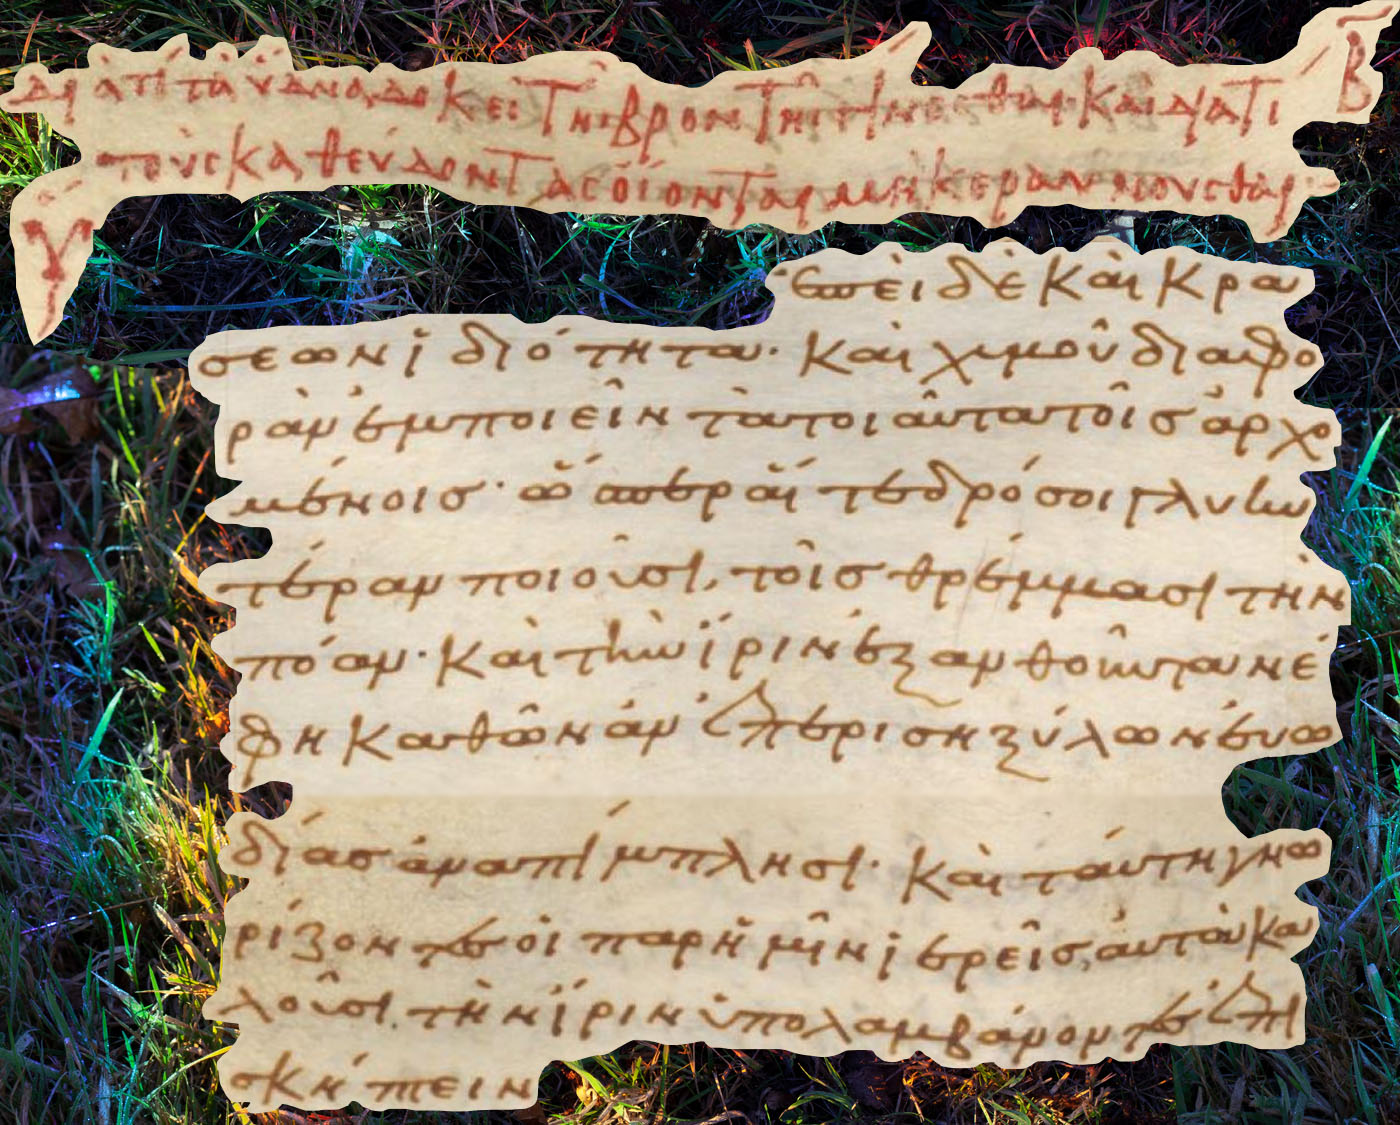 Β
Διατί τὰ ὕδνα δοκεῖ τῆ βροντῆ γίνεσθαι· καὶ διατί
τοὺς καθεύδοντας οἴονται μὴ κεραυνοῦσθαι·
Γ
ἐπεὶ δὲ καὶ κρα
σεων ἰδιότητα· καὶ χυμοῦ διαφο
ρὰν ἐμποιεῖν τὰ τοιαῦτα τοῖς ἀρχο
μένοις· ὥσπερ αἵ τε δρόσοι γλυκυ
τέραν ποιοῦσι, τοῖς θρέμμασι τὴν
πόαν· καὶ τὴν ἶριν ἐξανθοῦντα νέ
φη καθ ὧν ἂν ἐπερίση ξύλων εὐω
δίας ἀναπίμπλησι· καὶ ταύτη γνω
ρίζοντες οἱ παρ ἡμῖν ἱερεῖς, αὐτὰ κα
λοῦσι, τὴν ἶριν ὑπολαμβάνοντες ἐπι
σκήπτειν